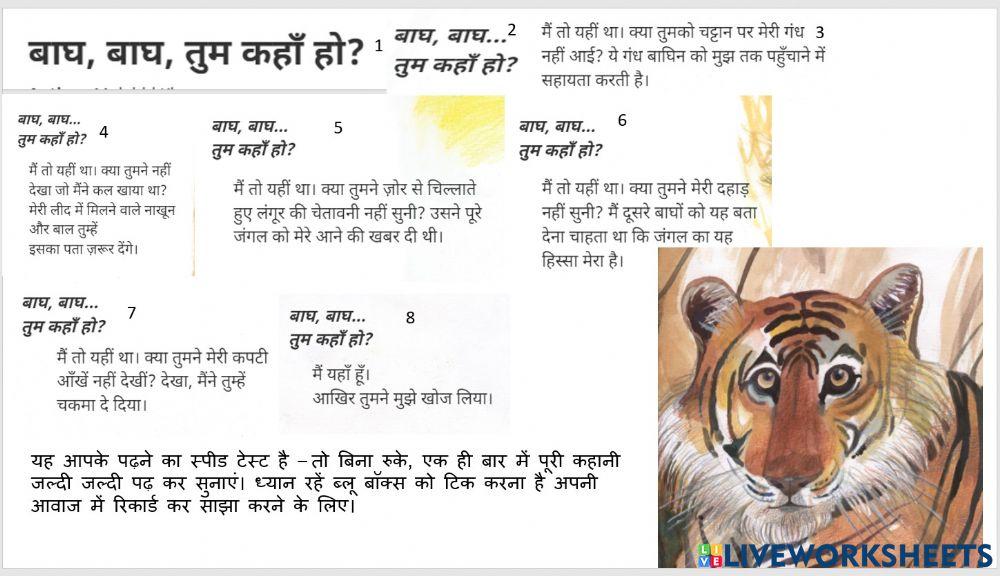 बाघ, बाघ, तुम कहाँ हो? 1
बाघ, बाघ... 2
तुम कहाँ हो?
मैं तो यहीं था। क्या तुमको चट्टान पर मेरी गंध 3
नहीं आई? ये गंध बाघिन को मुझ तक पहुँचाने में
सहायता करती है।
बाघ, बाघ... 4
तुम कहाँ हो?
मैं तो यहीं था। क्या तुमने नहीं
देखा जो मैंने कल खाया था?
मेरी लीद में मिलने वाले नाखून
और बाल तुम्हें
इसका पता ज़रूर देंगे।
बाघ, बाघ... 5
तुम कहाँ हो?
मैं तो यहीं था। क्या तुमने ज़ोर से चिल्लाते
हुए लंगूर की चेतावनी नहीं सुनी? उसने पूरे
जंगल को मेरे आने की खबर दी थी।
बाघ, बाघ... 6
तुम कहाँ हो?
मैं तो यहीं था। क्या तुमने मेरी दहाड़
नहीं सुनी? मैं दूसरे बाघों को यह बता
देना चाहता था कि जंगल का यह
हिस्सा मेरा है।
बाघ, बाघ... 7
तुम कहाँ हो?
मैं तो यहीं था। क्या तुमने मेरी कपटी
आँखें नहीं देखीं? देखा, मैंने तुम्हें
चकमा दे दिया।
बाघ, बाघ... 8
तुम कहाँ हो?
मैं यहाँ हूँ।
आखिर तुमने मुझे खोज लिया।
यह आपके पढ़ने का स्पीड टेस्ट है – तो बिना रुके, एक ही बार में पूरी कहानी
जल्दी जल्दी पढ़ कर सुनाएं। ध्यान रहें ब्लू बॉक्स को टिक करना है अपनी
आवाज में रिकार्ड कर साझा करने के लिए।
LIVE LIVEWORKSHEETS